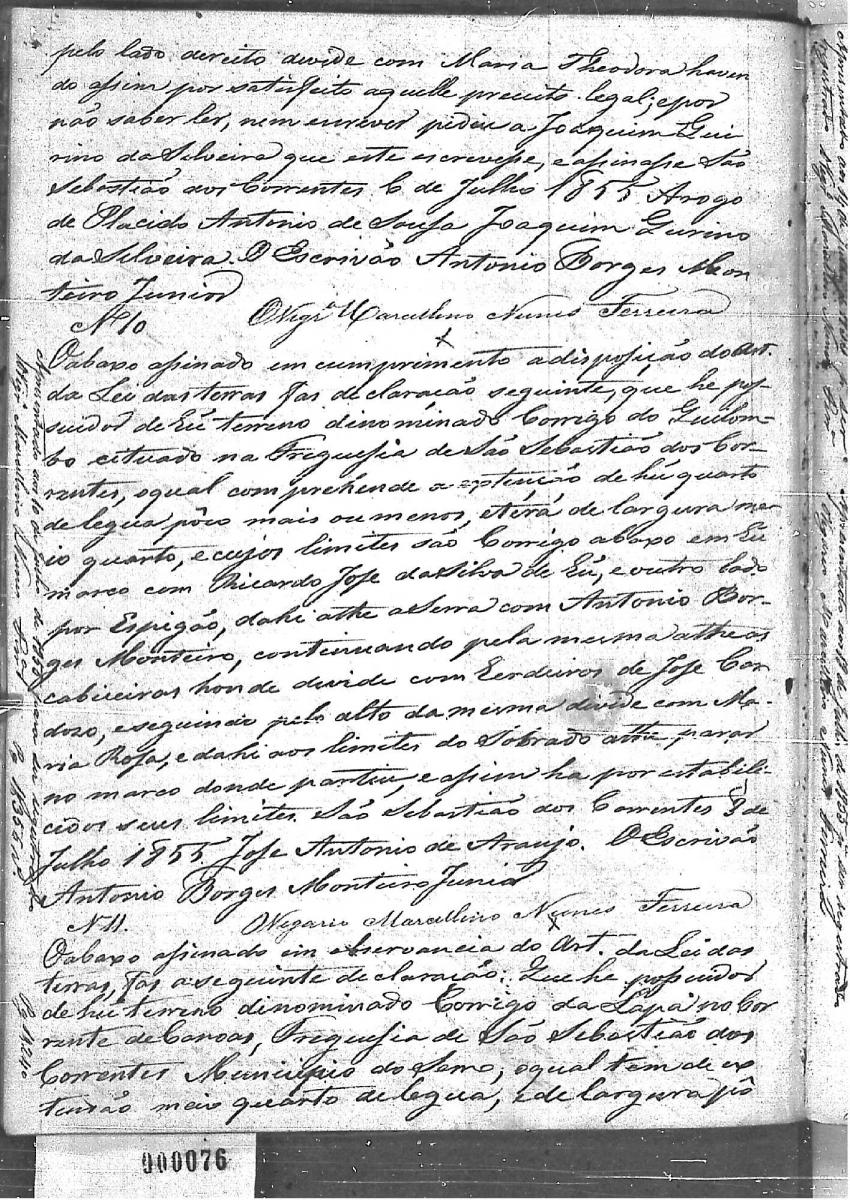 pelo lado dereito devide com Maria Theodora haven
do assim por satisfeito aquelle preceito legal; e por
não saber ler, nem escrever pediu a Joaquim Gui
rino da Silveira que este escrevese, e assinasse São
Sebastião dos Correntes 6 de Julho 1855 Arogo
de Placido Antonio de Sousa Joaquim Guirino
da Silveira. O Escrivão Antonio Borges Mon
teiro Junior
Nº 10 O Vigrº Marcellino Nunes Ferreira
O abaxo assinado em cumprimento a disposição do Art.
da Lei das terras fas declaração seguinte, que he pos-
suidor de hũ terreno dinominado Corrigo do Guilom-
bo cituado na Freguesia de São Sebastião dos Cor-
rentes, o qual comprehende a extenção de hũ quarto
de legua pôco mais ou menos, eterá de largura me
io quarto, e cujos limites são Corrigo abaxo em hũ
marco com Ricardo Jose da Silva de hũ, e outro lado
por Espigão, dahi athe a Serra com Antonio Bor-
ges Monteiro, continuando pela mesma athe as
cabiceiras honde devide com Eerdeiros de Jose Car
dozo, e seguindo pelo alto da mesma devide com Ma-
ria Rosa, e dahi aos limites do Sobrado athe parar
no marco donde partiu, e assim ha por estabili-
cidos seus limites. São Sebastião dos Correntes 8 de
Julho 1855. Jose Antonio de Araujo. O Escrivão
Antonio Borges Monteiro Junior
N 11. O Vigario Marcellino Nunes Ferreira
O abaxo assinado em observancia do Art. da Lei das
terras, fas a seguinte declaração: Que he possuidor
de hũ terreno dinominado Corrigo da Lapa no Cor
rente de Canoas, Freguesia de São Sebastião dos
Correntes Municipio do Serro, o qual tem de ex
tensão meio quarto de legua, e de largura pô
Apresentado aos 10 de Julho de 1855 para ser registrado
Vigrº Marcellino Nunes Ferrª
000076